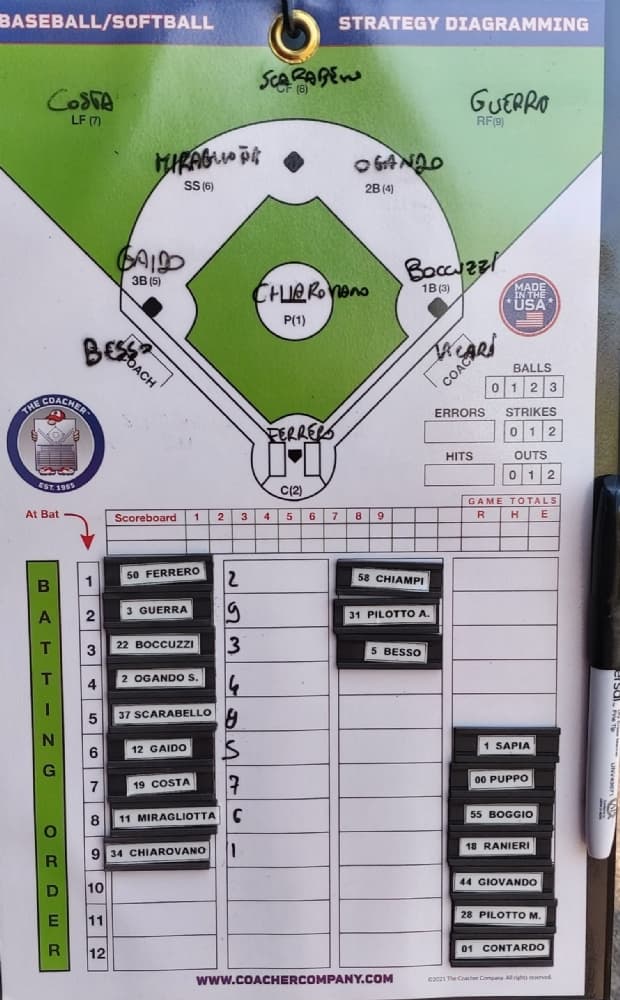 BASEBALL/SOFTBALL STRATEGY DIAGRAMMING
SCARABEW
CF (8)
COSTA
LF (7)
GUERRO
RF(9)
SS (6)
OGANDO
2B (4)
GAIDO
3B (5)
BOCCUZZI
1B (3)
CHIAROVANO
P(1)
MADE IN THE USA
BESSO
COACH
VICARI
COACH
BALLS
0 1 2 3
ERRORS STRIKES
0 1 2
HITS OUTS
0 1 2
THE COACHER
EST. 1985
FERRERO
C(2)
GAME TOTALS
At Bat Scoreboard 1 2 3 4 5 6 7 8 9 R H E
BATTING ORDER
1 50 FERRERO 2 58 CHIAMPI
2 3 GUERRA 9 31 PILOTTO A.
3 22 BOCCUZZI 3 5 BESSO
4 2 OGANDO S. 4
5 37 SCARABELLO 8
6 12 GAIDO 5 1 SAPIA
7 19 COSTA 7 00 PUPPO
8 11 MIRAGLIOTTA 6 55 BOGGIO
9 34 CHIAROVANO 1 18 RANIERI
10 44 GIOVANDO
11 28 PILOTTO M.
12 01 CONTARDO
WWW.COACHERCOMPANY.COM
©2021 The Coacher Company. All rights reserved.